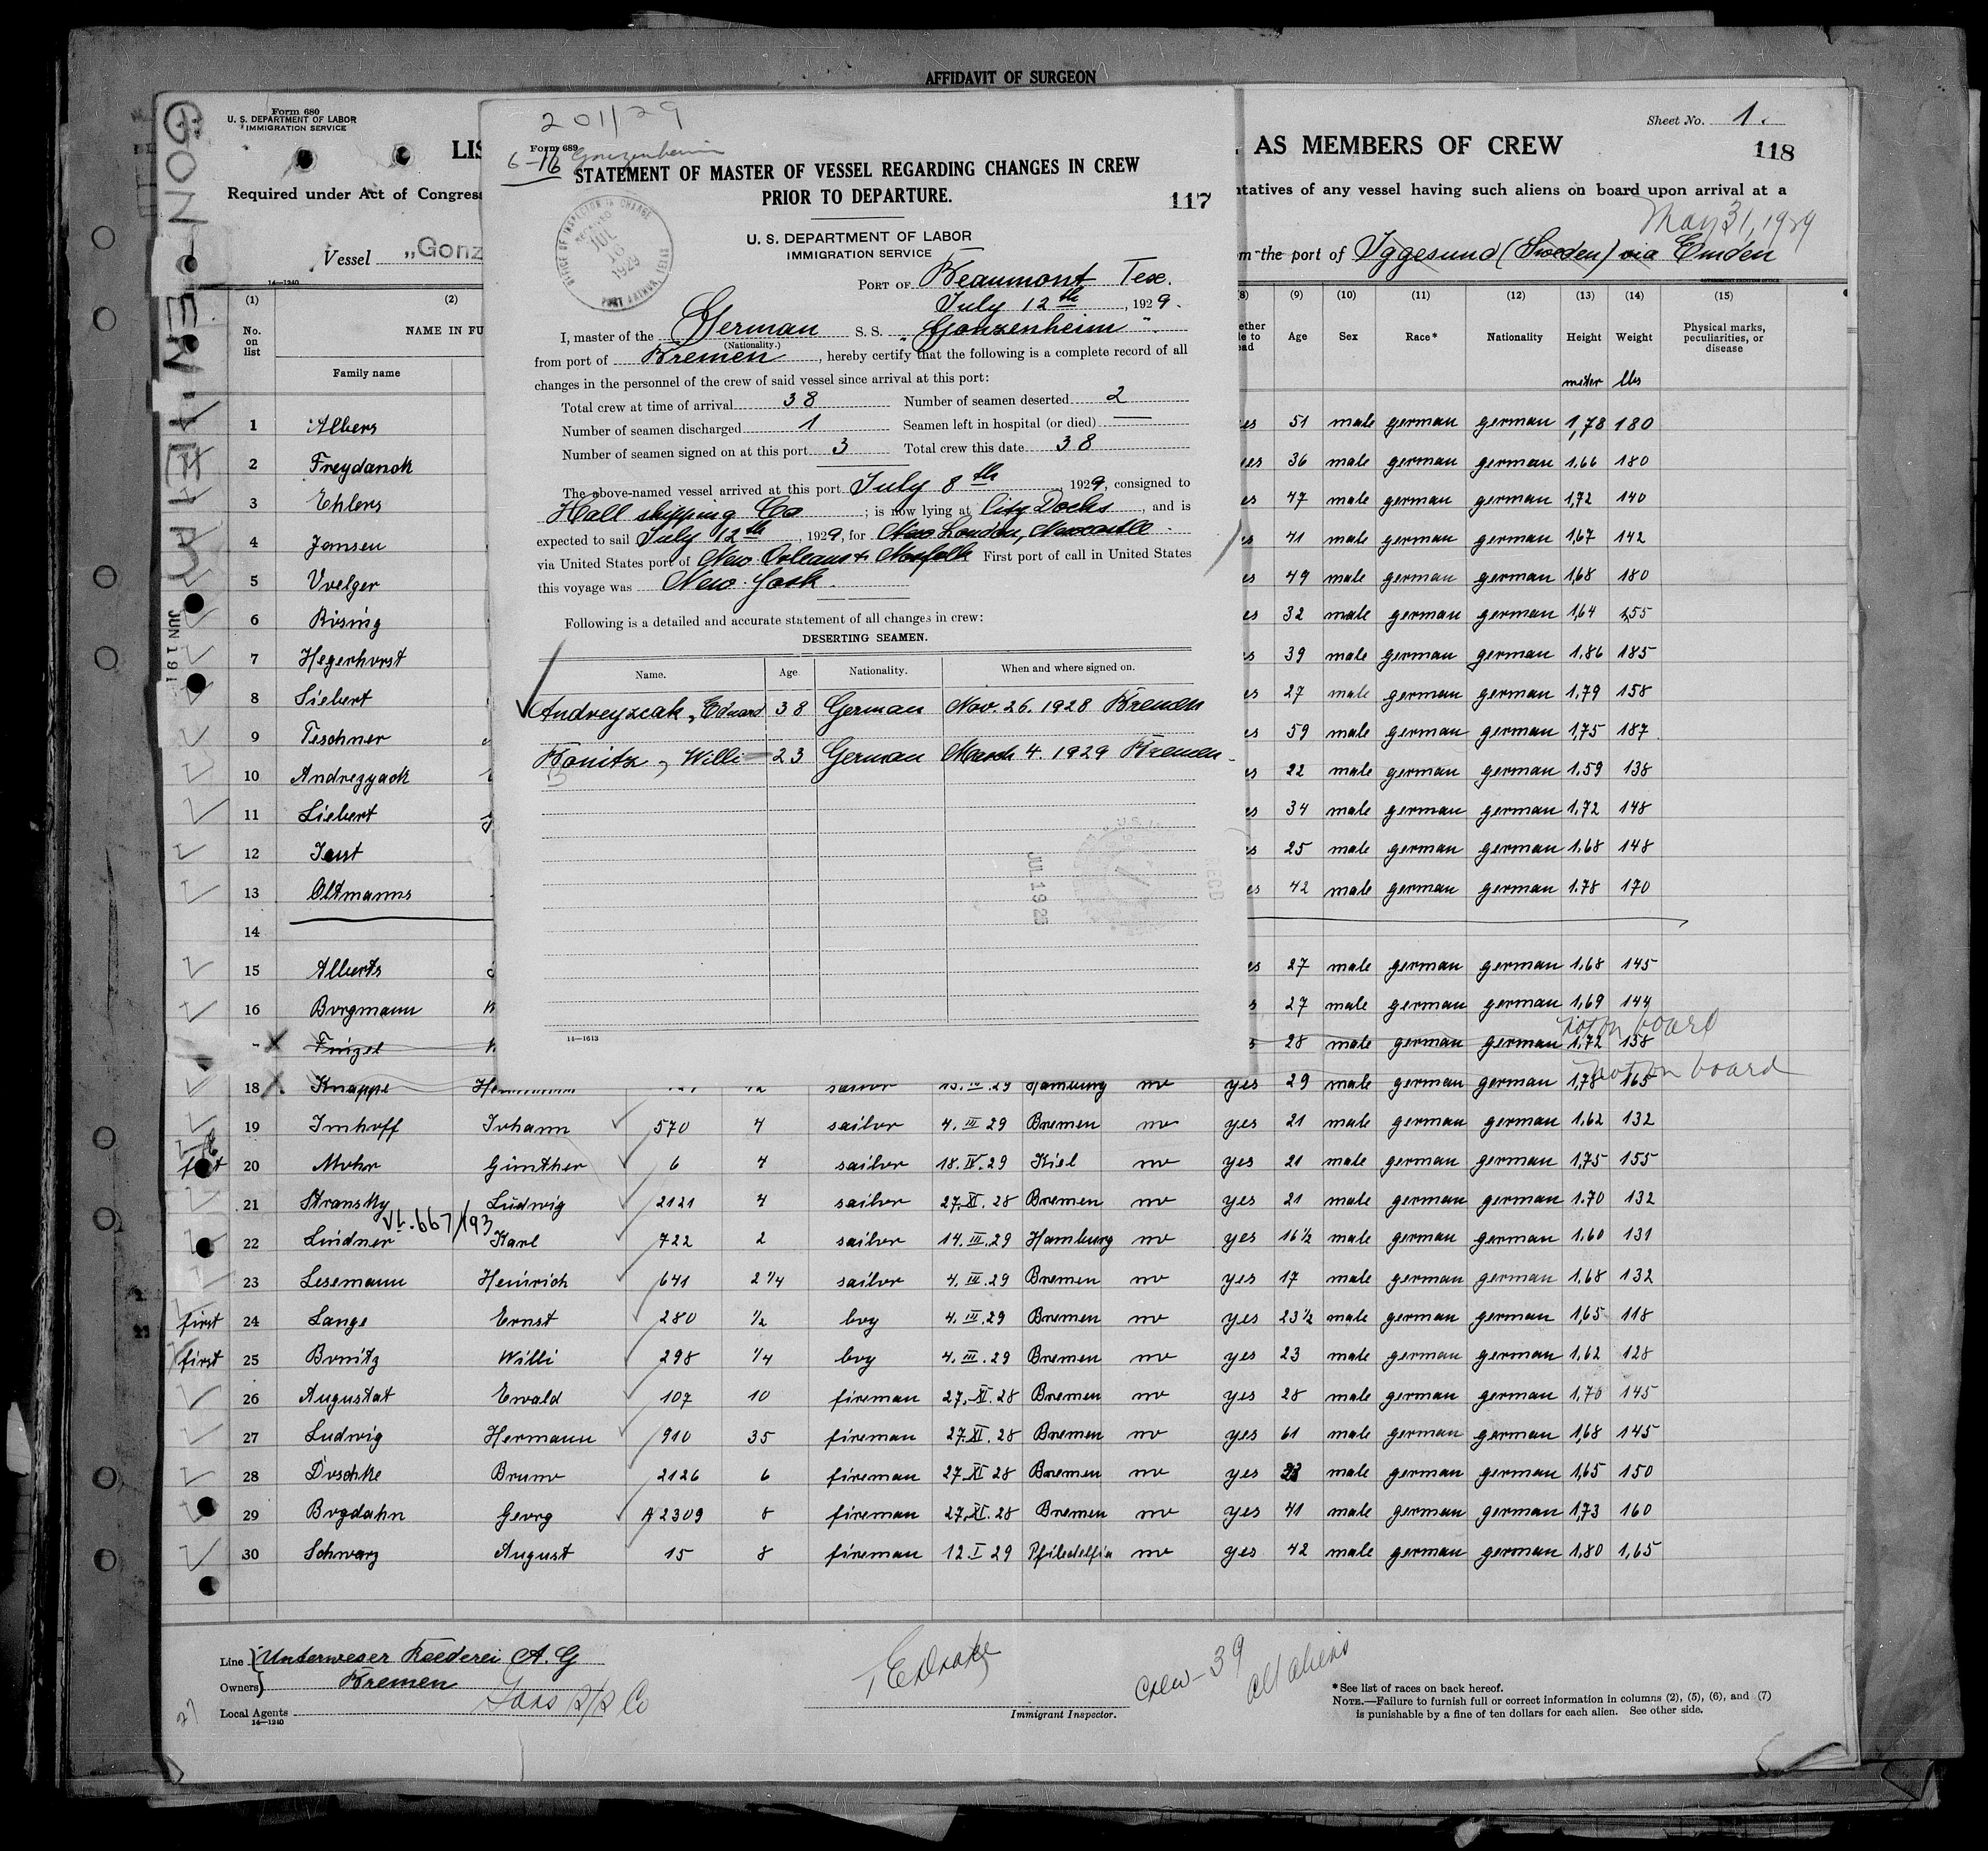 AFFIDAVIT OF SURGEON
Form 680
U. S. DEPARTMENT OF LABOR
IMMIGRATION SERVICE
LIS
AS MEMBERS OF CREW
Sheet No. 1.
118
Required under Act of Congress
tatives of any vessel having such aliens on board upon arrival at a
May 31, 1929
Vessel „Gonz
the port of Iggesund (Sweden) via Emden
GONZENHEIM
JUN 19
14—1240
(1) (2) (8) (9) (10) (11) (12) (13) (14) (15)
No. on list
NAME IN FU
Family name
Age Sex Race* Nationality Height Weight Physical marks, peculiarities, or disease
meter lbs
1 Albers es 51 male german german 1,78 180
2 Freydanck es 36 male german german 1.66 180
3 Ehlers es 47 male german german 1,72 140
4 Jansen es 41 male german german 1,67 142
5 Uvelger es 49 male german german 1,68 180
6 Rising es 32 male german german 1,64 155
7 Hegerhorst es 39 male german german 1.86 185
8 Siebert es 27 male german german 1.79 158
9 Tischner es 59 male german german 1,75 187
10 Andrezyack es 22 male german german 1.59 138
11 Liebert es 34 male german german 1.72 148
12 Jaust es 25 male german german 1.68 148
13 Oltmanns es 42 male german german 1.78 170
14
15 Alberts es 27 male german german 1,68 145
16 Borgmann s 27 male german german 1,69 144
Fingel 28 male german german 1,72 158 not on board
18 Knappe sailor 29 Hamburg no yes 29 male german german 1,78 165 not on board
19 Imhoff Johann 570 4 sailor 4. III 29 Bremen no yes 21 male german german 1.62 132
first 20 Mohr Günther 6 4 sailor 18. IV. 29 Kiel no yes 21 male german german 1,75 155
21 Stransky Ludwig 2121 4 sailor 27. XI. 28 Bremen no yes 21 male german german 1.70 132
VL. 667/193
22 Lindner Karl 722 2 sailor 14. III. 29 Hamburg no yes 16½ male german german 1.60 131
23 Lesemann Heinrich 641 2¼ sailor 4. III. 29 Bremen no yes 17 male german german 1.68 132
first 24 Lange Ernst 280 ½ boy 4. III. 29 Bremen no yes 23½ male german german 1,65 118
first 25 Bonitz Willi 298 ¼ boy 4. III. 29 Bremen no yes 23 male german german 1,62 128
26 Augustat Ewald 107 10 fireman 27. XI. 28 Bremen no yes 28 male german german 1,70 145
27 Ludwig Hermann 910 35 fireman 27. XI. 28 Bremen no yes 61 male german german 1,68 145
28 Doschke Bruno 2126 6 fireman 27 XI 28 Bremen no yes 23 male german german 1,65 150
29 Bogdahn Georg A 2309 8 fireman 27. XI. 28 Bremen no yes 41 male german german 1,73 160
30 Schwarz August 15 8 fireman 12 I 29 Philedelfia no yes 42 male german german 1,80 1,65
Line Unterweser Reederei A. G
Owners Bremen
Local Agents
14—1240
27
Immigrant Inspector.
Crew - 39
all aliens
*See list of races on back hereof.
NOTE.—Failure to furnish full or correct information in columns (2), (5), (6), and (7)
is punishable by a fine of ten dollars for each alien. See other side.
201/29
Form 689
6-16 Gonzenheim
STATEMENT OF MASTER OF VESSEL REGARDING CHANGES IN CREW
PRIOR TO DEPARTURE.
117
OFFICE OF INSPECTOR IN CHARGE
RECEIVED
JUL 16 1929
PORT ARTHUR, TEXAS
U. S. DEPARTMENT OF LABOR
IMMIGRATION SERVICE
PORT OF Beaumont, Tex.
July 12th, 1929.
I, master of the German S. S. „Gonzenheim"
(Nationality.)
from port of Bremen, hereby certify that the following is a complete record of all
changes in the personnel of the crew of said vessel since arrival at this port:
Total crew at time of arrival 38 Number of seamen deserted 2
Number of seamen discharged 1 Seamen left in hospital (or died) —
Number of seamen signed on at this port 3 Total crew this date 38
The above-named vessel arrived at this port July 8th, 1929, consigned to
Hall shipping Co; is now lying at City Docks, and is
expected to sail July 12th, 1929, for New London, Newcastle
via United States port of New Orleans & Norfolk First port of call in United States
this voyage was New York.
Following is a detailed and accurate statement of all changes in crew:
DESERTING SEAMEN.
Name. Age Nationality. When and where signed on.
Andreyzcak, Eduard 38 German Nov. 26. 1928 Bremen
Bonitz, Willi 23 German March 4. 1929 Bremen
B
14—1613